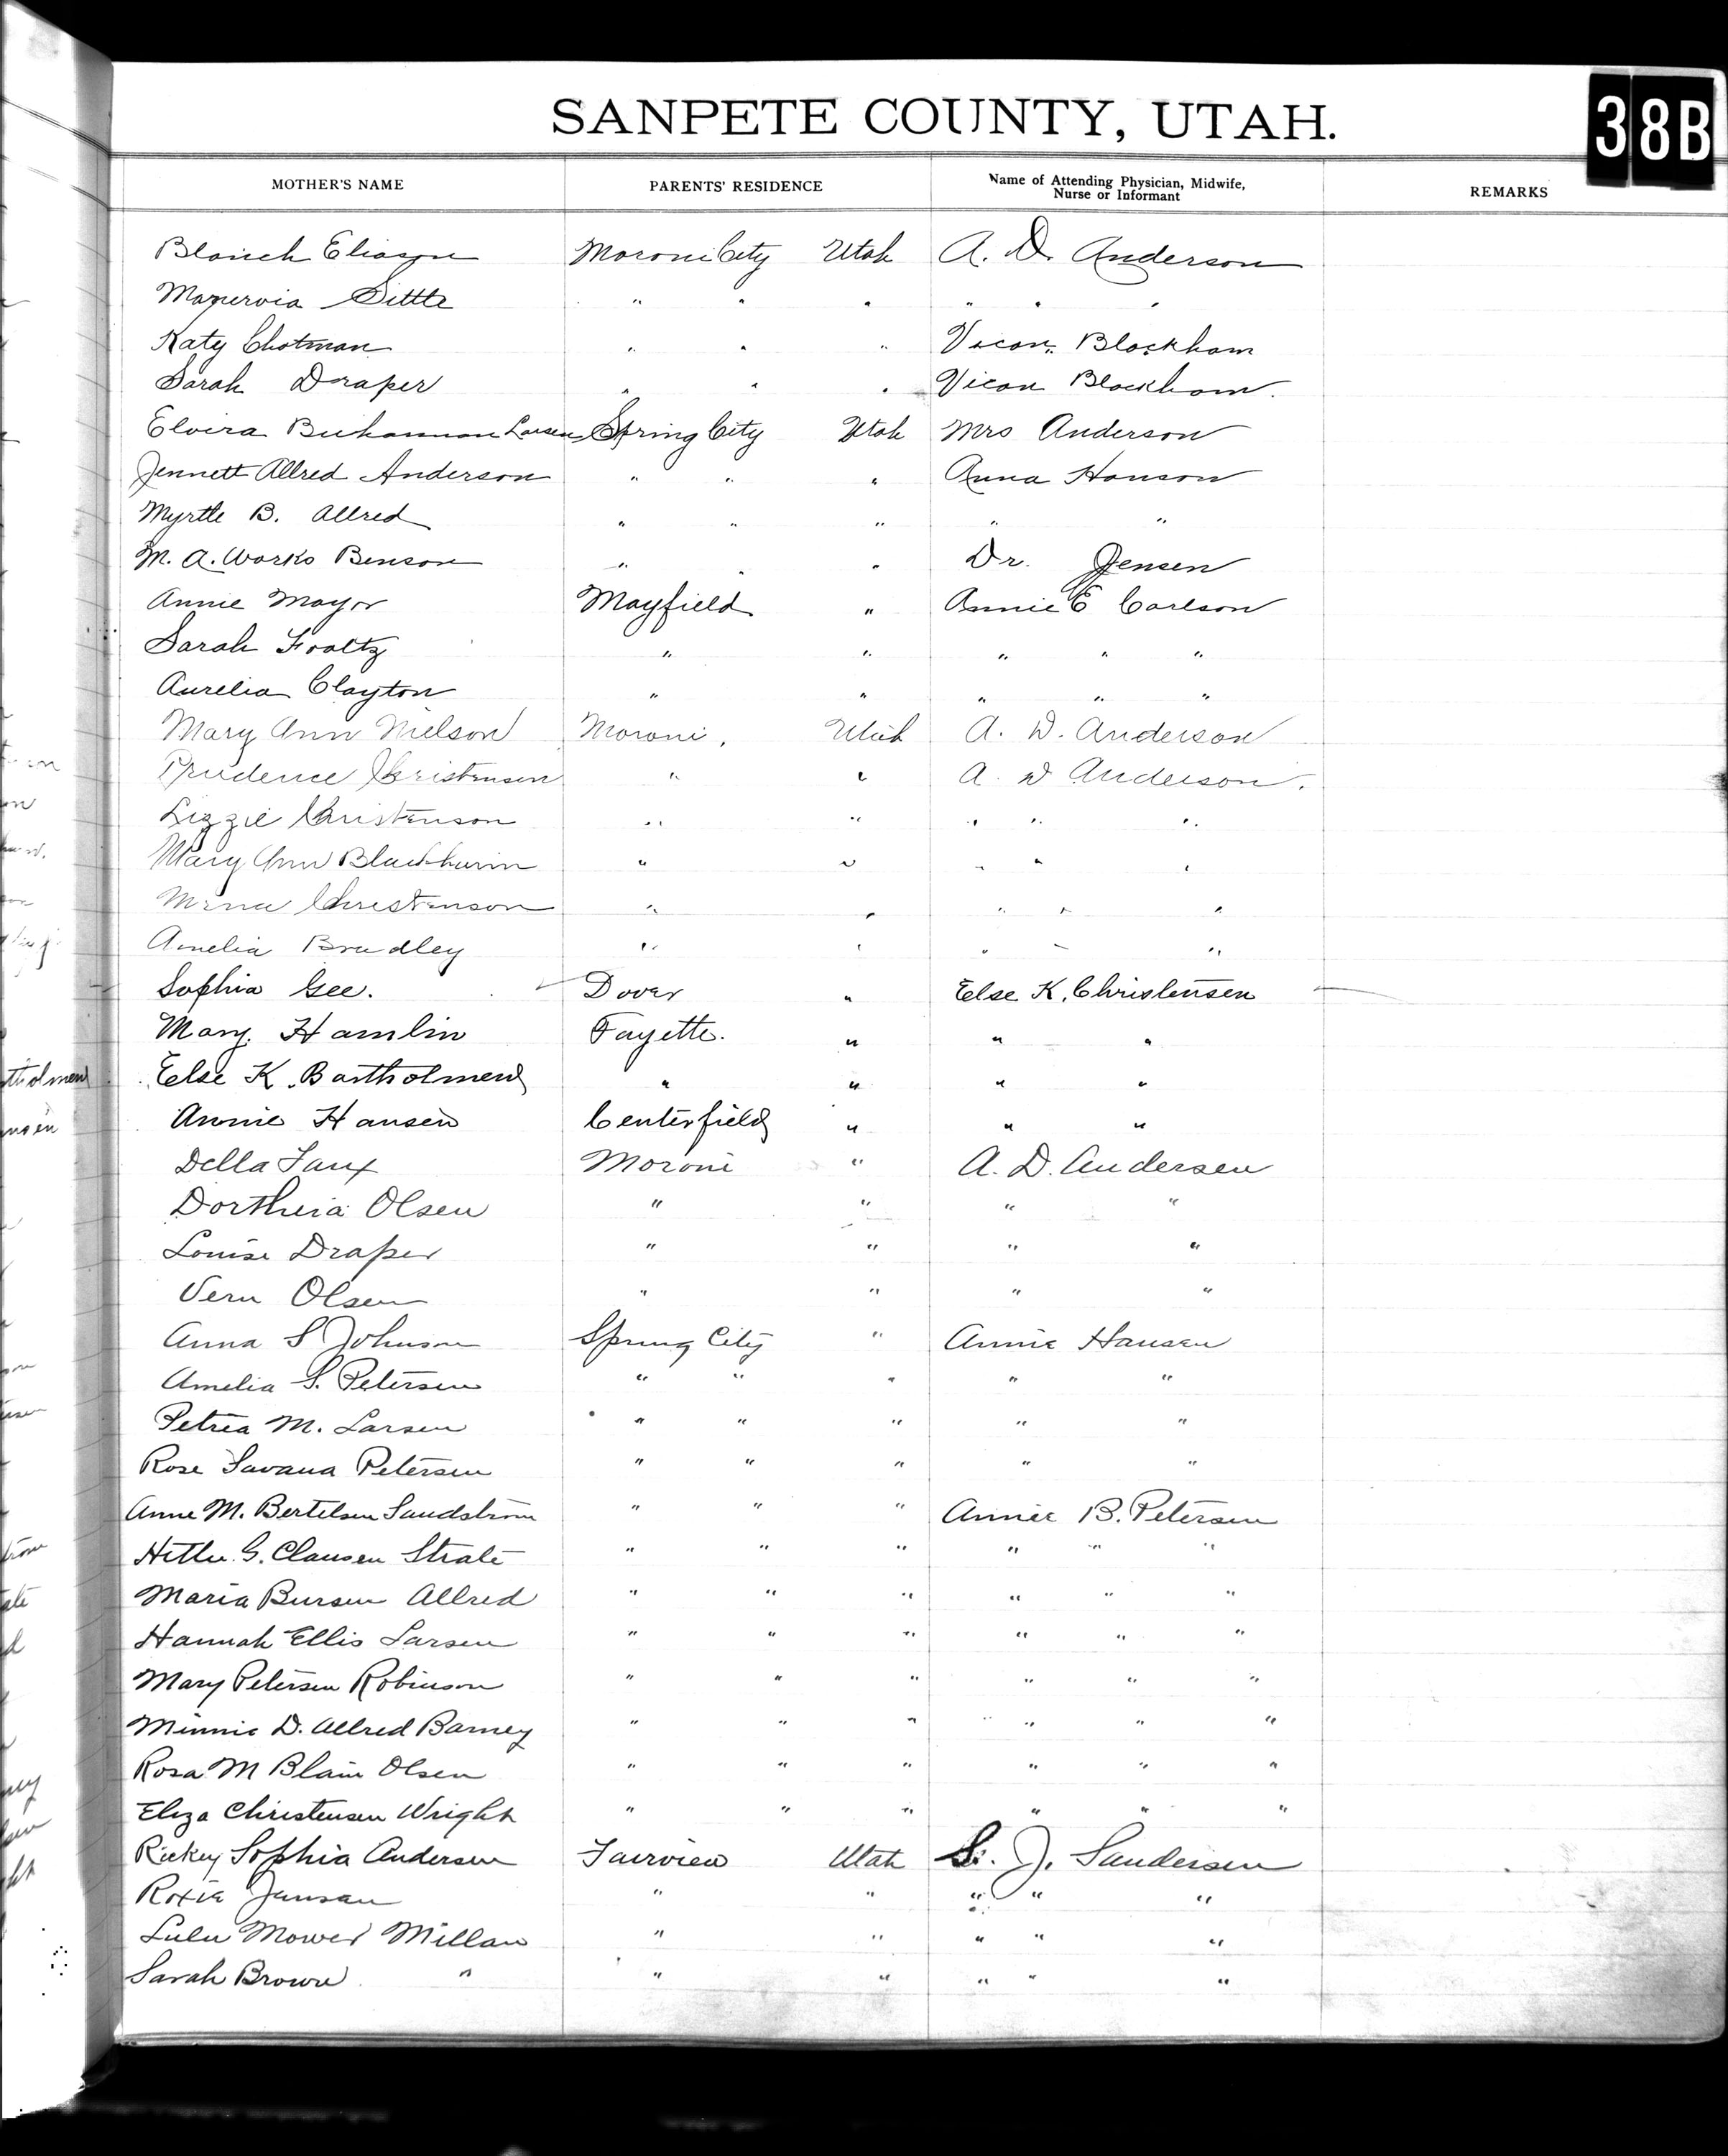 SANPETE COUNTY, UTAH.
38B
MOTHER'S NAME PARENTS' RESIDENCE Name of Attending Physician, Midwife, Nurse or Informant REMARKS
Blanch Eliason Moroni City Utah A. D. Anderson
Settle " " " " " "
Katy " " " Vican Blackham
Sarah Draper " " " Vican Blackham.
Elvira Larsen Spring City Utah Mrs Anderson
Jennett Allred Anderson " " " Anna Hanson
Myrtle B. Allred " " " " "
M. A. Works Benson " " " Dr. Jensen
Annie Mayor Mayfield " Annie E Carlson
Sarah " " " " "
Aurelia Clayton " " " " "
Mary Ann Nielson Moroni, Utah A. D. Anderson
Prudence Christensen " " A. D Anderson.
Lizzie Christenson " " " " "
Mary Ann " " " " "
Christenson " " " " "
Amelia Bradley " " " " "
Sophia Gee. Dover " Else K. Christensen
Mary Hamlin Fayette. " " "
Else K. Bartholmew " " " "
Annie Hansen Centerfield " " "
Della Faux Moroni " A. D. Andersen
Dortheia Olsen " " " "
Louise Draper " " " "
Vern Olsen " " " "
Anna S Johnson Spring City " Annie Hansen
Amelia S. Petersen " " " " "
Petrea M. Larsen " " " " "
Rose Petersen " " " " "
Anne M. Bertelsen Sandstrom " " " Annie B. Petersen
G. Clausen Strate " " " " " "
Maria Allred " " " " " "
Hannah Ellis Larsen " " " " " "
Mary Petersen Robinson " " " " " "
Minnie D. Allred Barney " " " " " "
Rosa M Blain Olsen " " " " " "
Eliza Christensen Wright " " " " " "
Sophia Andersen Fairview Utah S. J. Sandersen
Roxie Jansen " " " " "
Lulu Mower Millan " " " " "
Sarah Brown " " " " " "